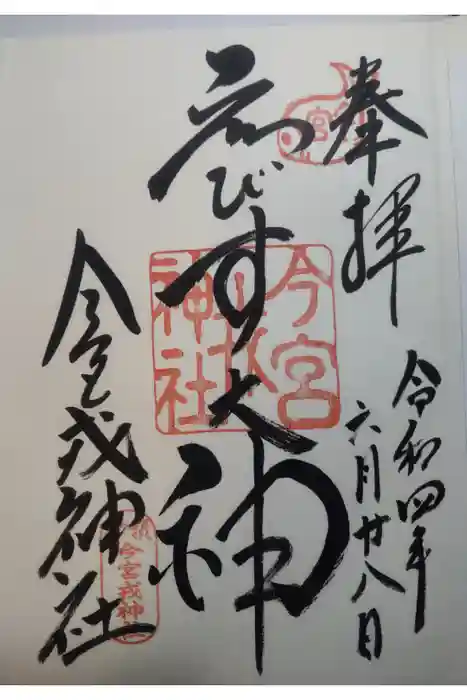 奉拝
令和四年
六月廿八日
ゑびす大神
今宮戎神社
今宮
戎
神社
今宮戎神社